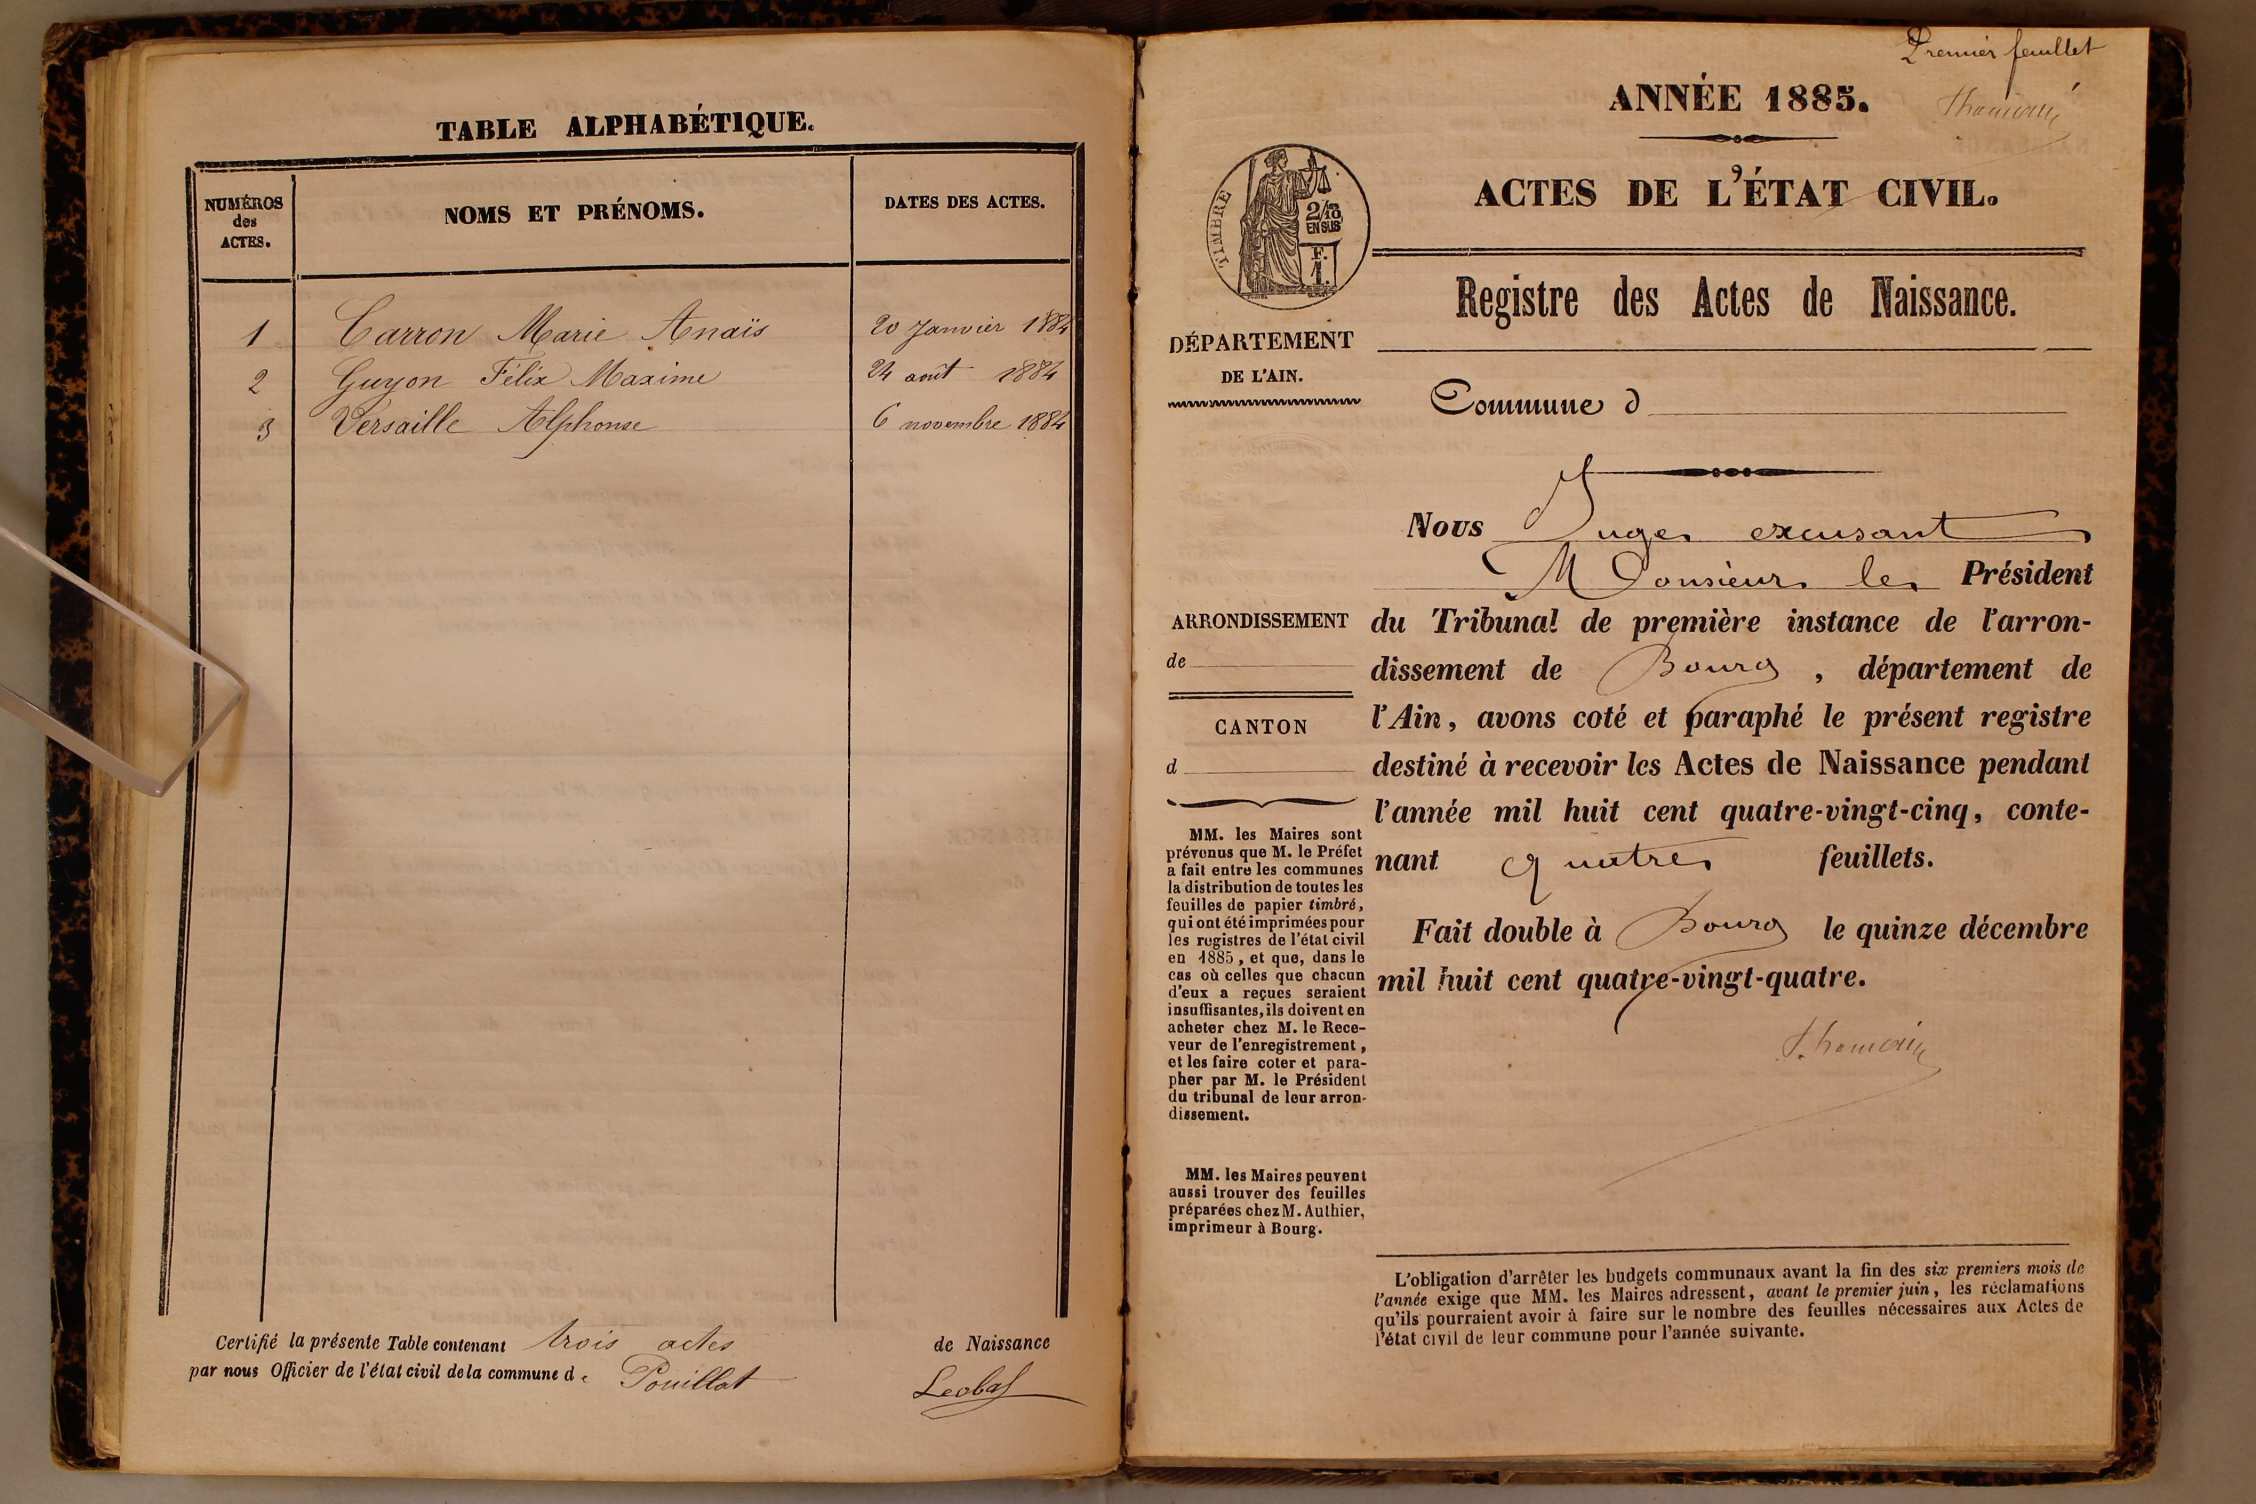 TABLE ALPHABÉTIQUE.
NUMÉROS
des
ACTES.
NOMS ET PRÉNOMS.
DATES DES ACTES.
1 Carron Marie Anaïs 20 Janvier 1884
2 Guyon Félix Maxime 24 août 1884
3 Versaille Alphonse 6 novembre 1884
Certifié la présente Table contenant trois actes de Naissance
par nous Officier de l'état civil de la commune de Pouillat
Premier feuillet
ANNÉE 1885.
ACTES DE L'ÉTAT CIVIL.
TIMBRE
2/10
EN SUS
F.
1.
Registre des Actes de Naissance.
DÉPARTEMENT
DE L'AIN.
Commune d
ARRONDISSEMENT
de
CANTON
d
MM. les Maires sont
prévenus que M. le Préfet
a fait entre les communes
la distribution de toutes les
feuilles de papier timbré,
qui ont été imprimées pour
les registres de l'état civil
en 1885, et que, dans le
cas où celles que chacun
d'eux a reçues seraient
insuffisantes, ils doivent en
acheter chez M. le Rece-
veur de l'enregistrement,
et les faire coter et para-
pher par M. le Président
du tribunal de leur arron-
dissement.
MM. les Maires peuvent
aussi trouver des feuilles
préparées chez M. Authier,
imprimeur à Bourg.
Nous Juge excusant
Monsieur le Président
du Tribunal de première instance de l'arron-
dissement de Bourg, département de
l'Ain, avons coté et paraphé le présent registre
destiné à recevoir les Actes de Naissance pendant
l'année mil huit cent quatre-vingt-cinq, conte-
nant quatre feuillets.
Fait double à Bourg le quinze décembre
mil huit cent quatre-vingt-quatre.
L'obligation d'arrêter les budgets communaux avant la fin des six premiers mois de
l'année exige que MM. les Maires adressent, avant le premier juin, les réclamations
qu'ils pourraient avoir à faire sur le nombre des feuilles nécessaires aux Actes de
l'état civil de leur commune pour l'année suivante.